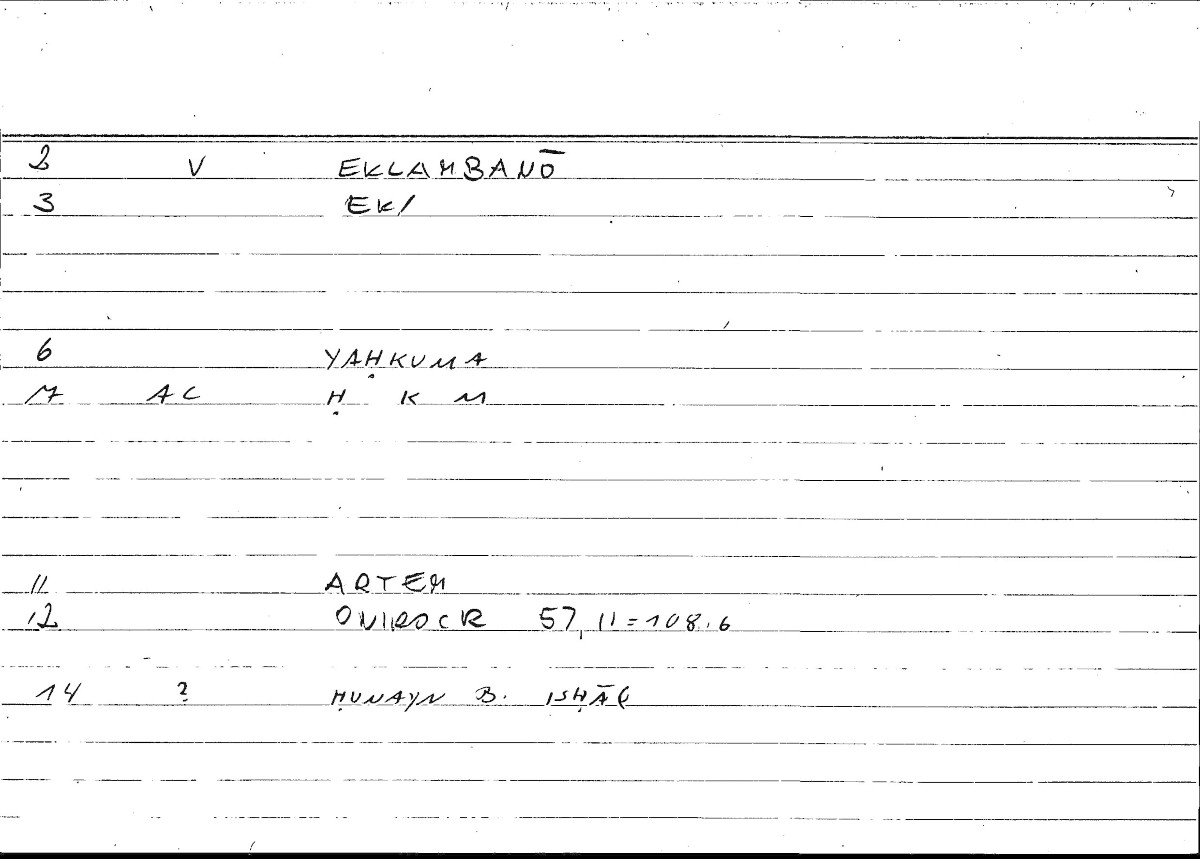 2 V EKLAMBANŌ
3 EK/
6 YAḤKUMA
7 AC Ḥ K M
11 ARTEM
12 ONIROCR 57,11=108.6
14 ? ḤUNAYN B. ISḤĀQ